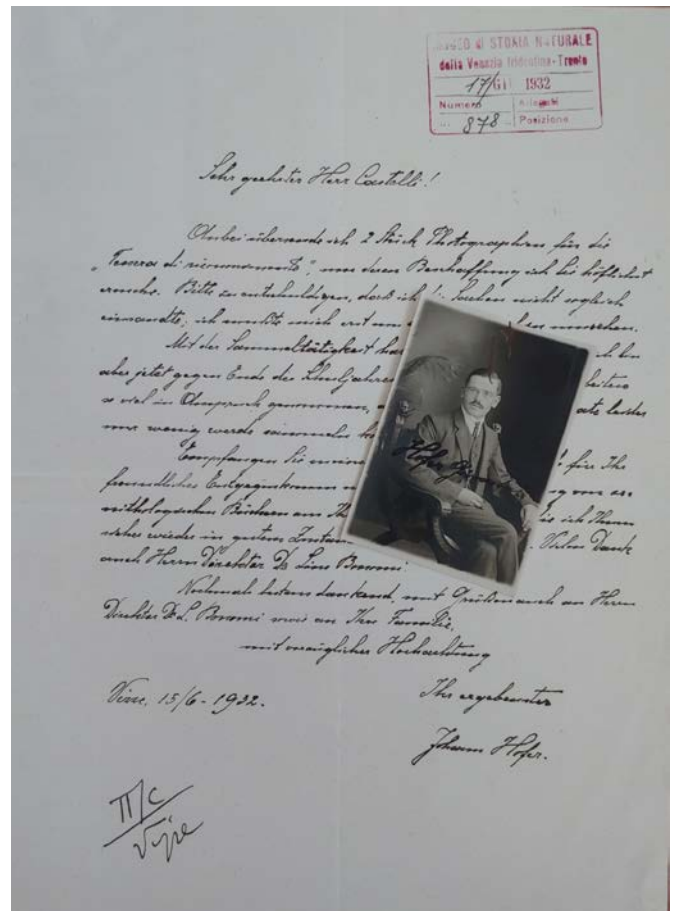 MUSEO di STORIA NATURALE
della Venezia Tridentina - Trento
17/GIU 1932
Numero Allegati
878 Posizione
Sehr geehrter Herr Castelli!
Anbei übersende ich 2 Stück Photographien für die
"Tessera di riconoscimento", um deren Beschaffung ich Sie höflichst
ersuche. Bitte zu entschuldigen, daß ich die Sachen nicht sogleich
einsandte; ich mußte mich erst um umsehen.
Mit der Sammeltätigkeit ich bin
aber jetzt gegen Ende des Schuljahres
so viel in Anspruch genommen, leider
nur wenig werde sammeln
Empfangen Sie meinen für Ihr
freundliches Entgegenkommen
nithologischen Büchern aus ich Ihnen
sicher wieder in gutem Vielen Dank
auch Herrn Direktor Dr Lino Bonomi.
Nochmals bestens dankend, mit Grüßen auch an Herrn
Direktor Dr L. Bonomi sowie an Ihre Familie,
mit vorzüglicher Hochachtung
Ihr ergebenster
Johann Hofer.
15/6 - 1932.
II/C
Hofer